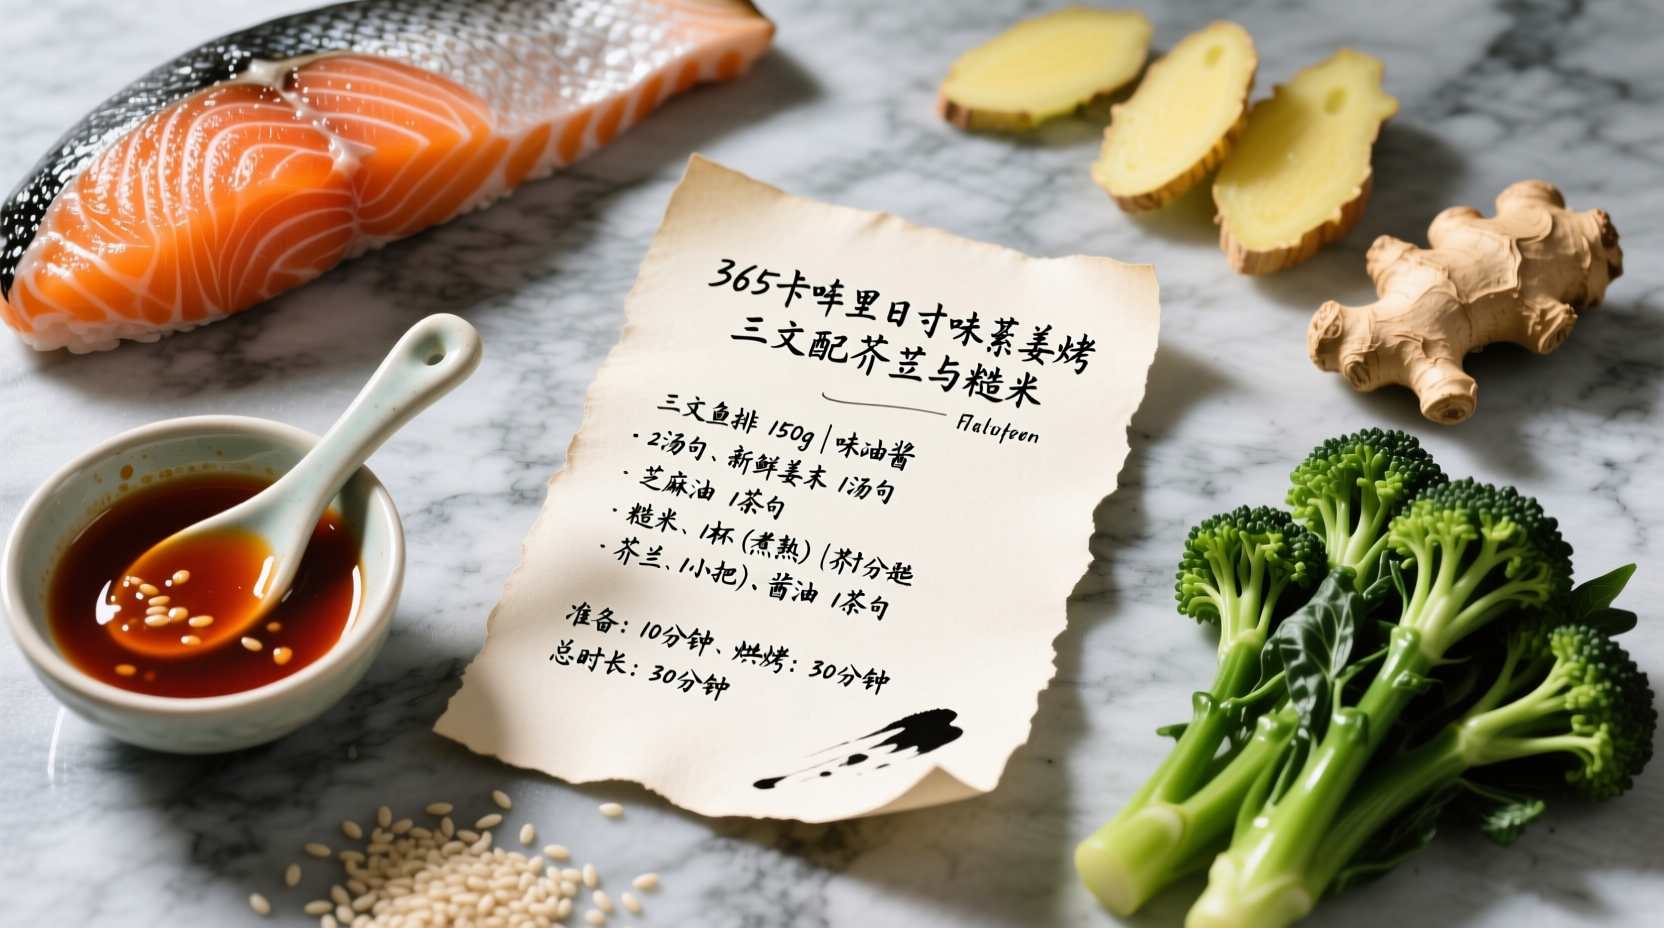 365卡哞里日寸味蒸姜烤
三文配芥苙与糙米
三文鱼排 150g | 味油酱
· 2汤句、新鲜姜末 1汤句
· 芝麻油 1茶句
· 糙米、1杯 (煮熟) (芥分
· 芥兰、1小把)、酱油 1茶句
准备: 10分钟、烘烤: 30分钟
总时长: 30分钟